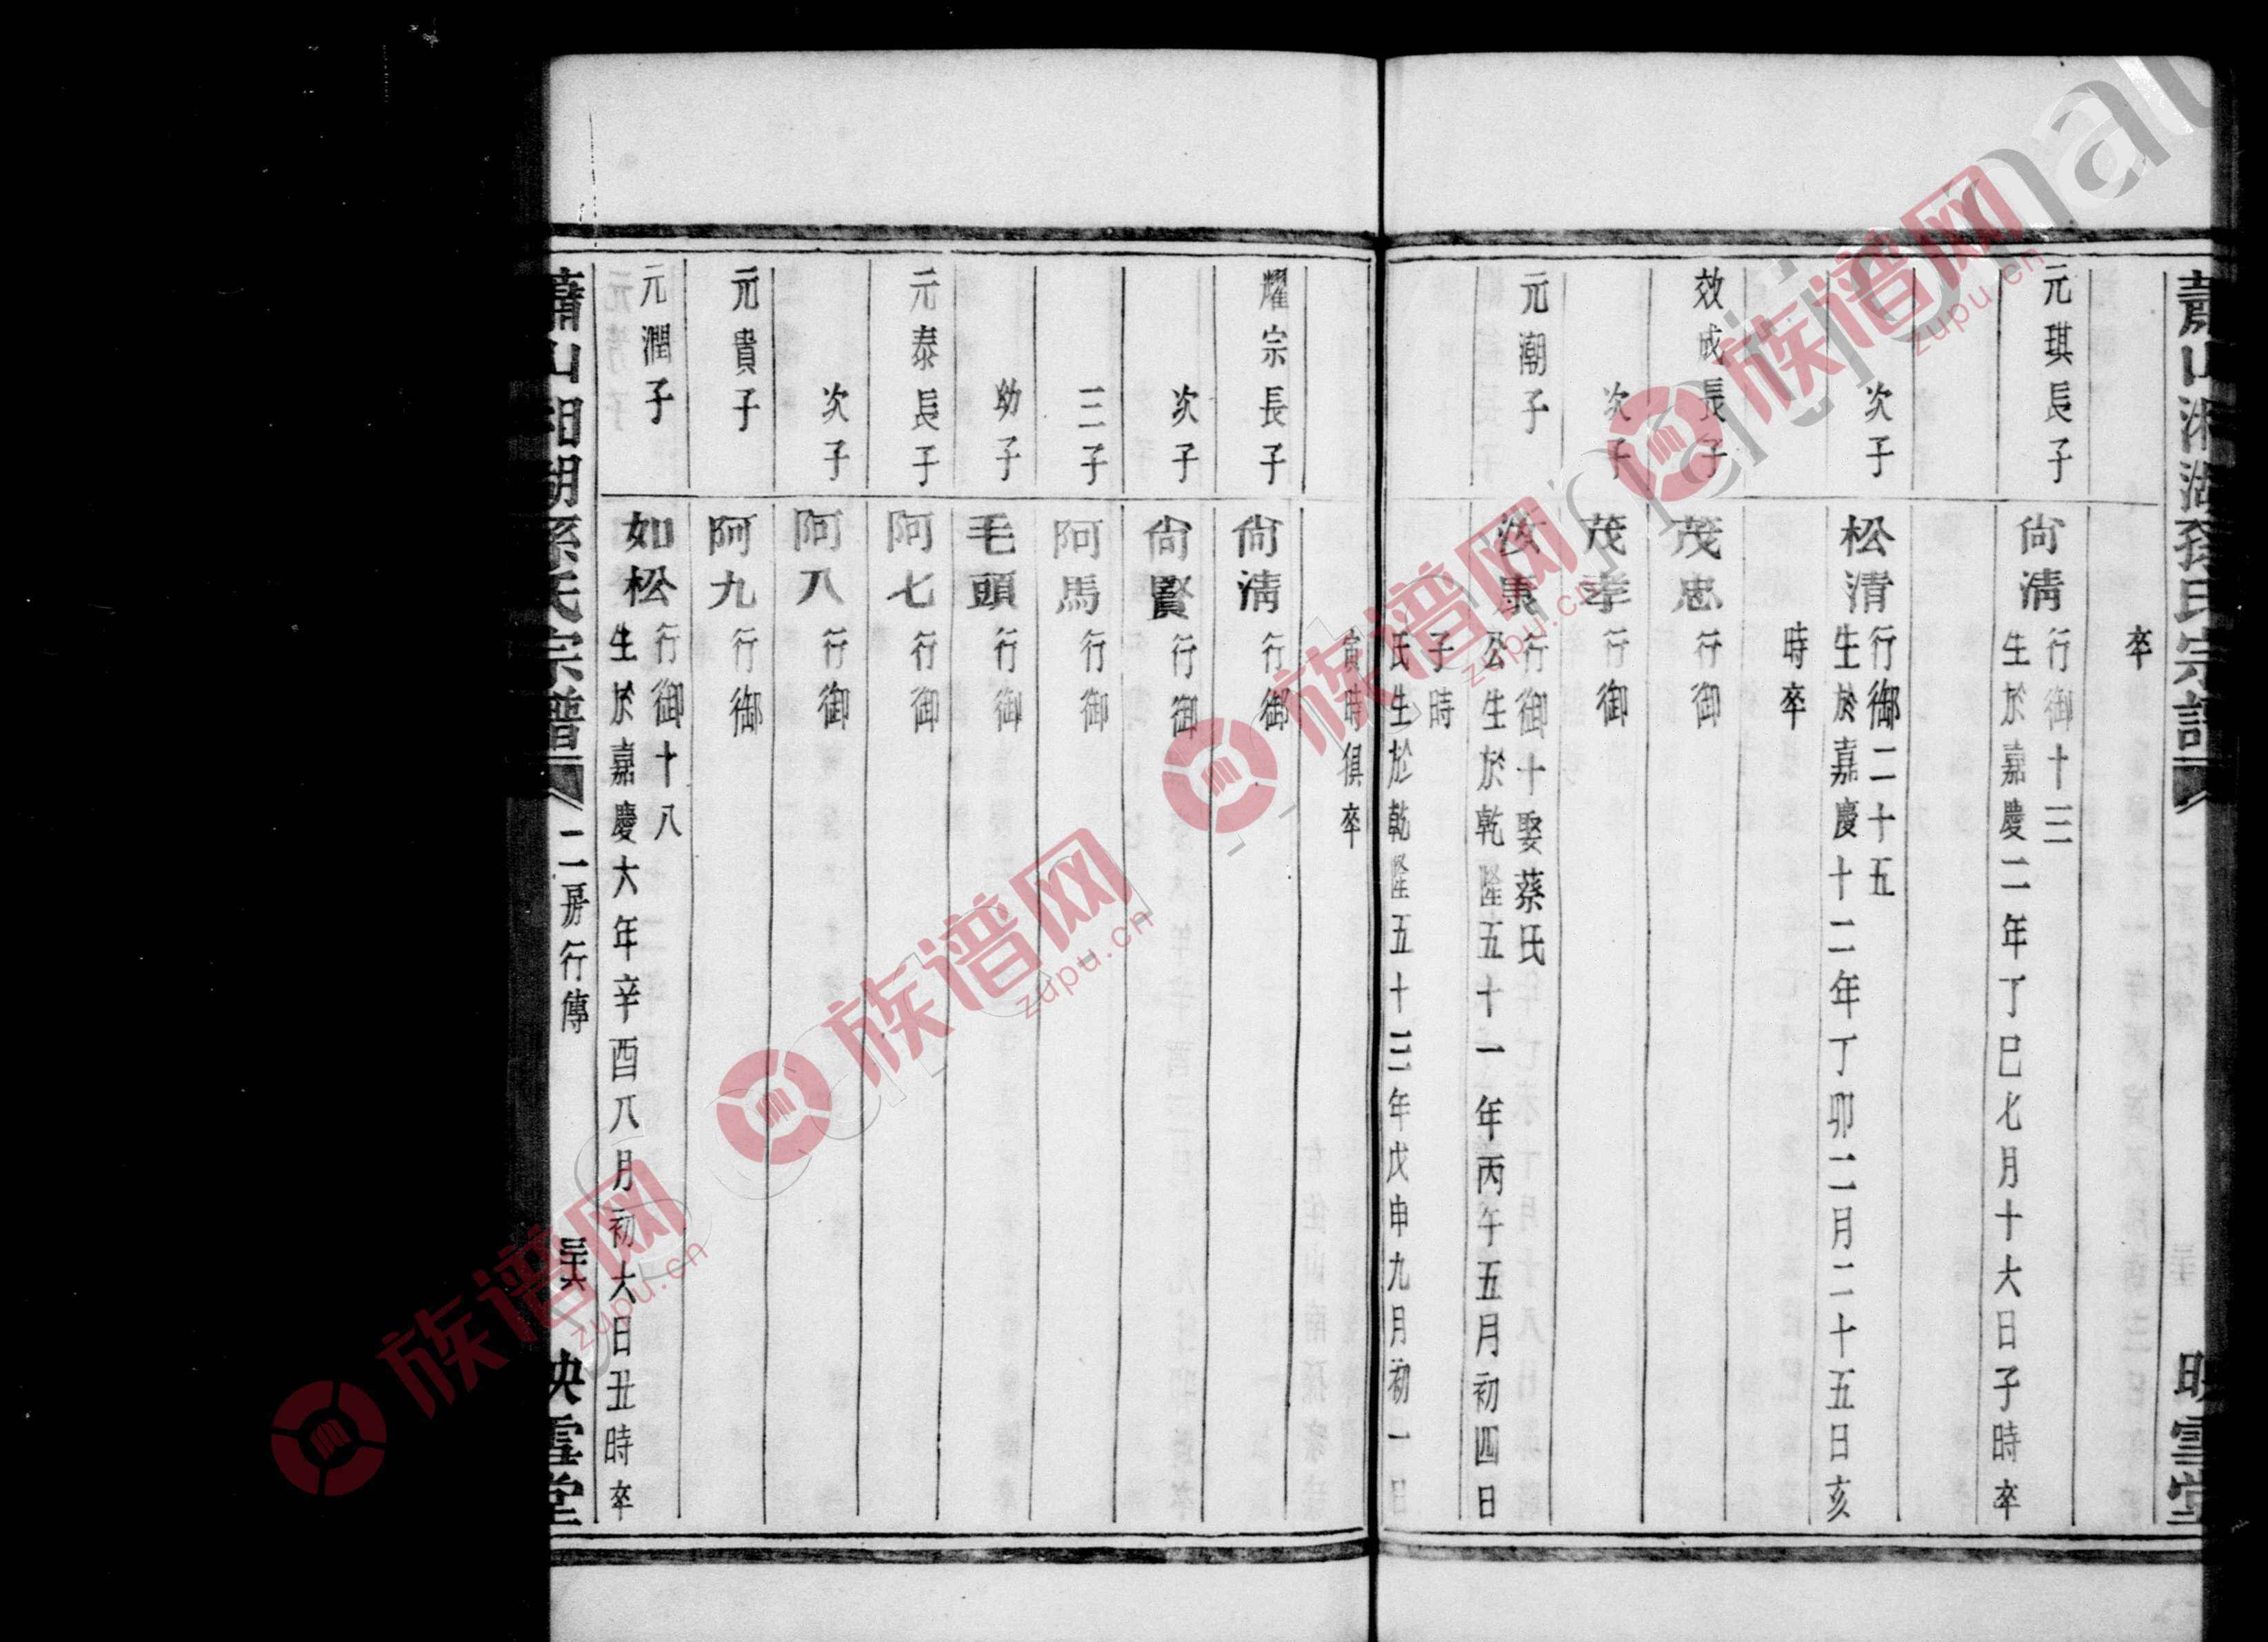 蕭山湘湖孫氏宗譜
映雪堂
卒
元琪長子
尙淸
行御十三
生於嘉慶二年丁巳七月十六日子時卒
次子
松清
行御二十五
生於嘉慶十二年丁卯二月二十五日亥
時卒
效成長子
茂忠
行御
次子
茂孝
行御
元潮子
汝康
行御十娶蔡氏
公生於乾隆五十一年丙午五月初四日
子時
氏生於乾隆五十三年戊申九月初一日
寅時俱卒
耀宗長子
尙清
行御
次子
尙賢
行御
三子
阿馬
行御
幼子
毛頭
行御
元泰長子
阿七
行御
次子
阿八
行御
元貴子
阿九
行御
元潤子
如松
行御十八
生於嘉慶六年辛酉八月初六日丑時卒
蕭山湘湖孫氏宗譜
二房行傳
映雪堂
族谱网
zupu.cn
族谱网
zupu.cn
族谱网
zupu.cn
族谱网
zupu.cn